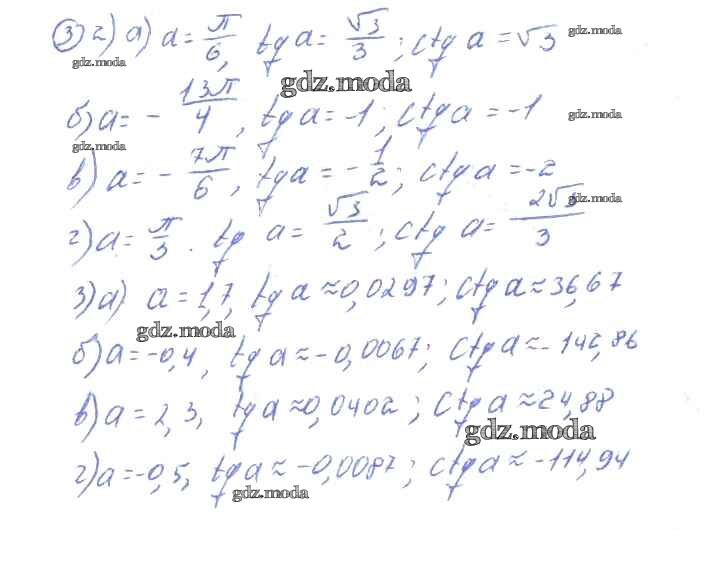 ③ 2) а) a = π/6, tg a = √3/3; ctg a = √3 gdz.moda
gdz.moda gdz.moda
б) a = - 13π/4, tg a = -1; ctg a = -1 gdz.moda
gdz.moda
в) a = - 7π/6, tg a = - 1/2; ctg a = -2
gdz.moda
г) a = π/3. tg a = √3/2; ctg a = 2√3/3
3) а) a = 1,7, tg a ≈ 0,0297; ctg a ≈ 36,67
gdz.moda
б) a = -0,4, tg a ≈ -0,0067; ctg a ≈ -142,86
в) a = 2,3, tg a ≈ 0,0402; ctg a ≈ 24,88
gdz.moda
г) a = -0,5, tg a ≈ -0,0087; ctg a ≈ -114,94
gdz.moda